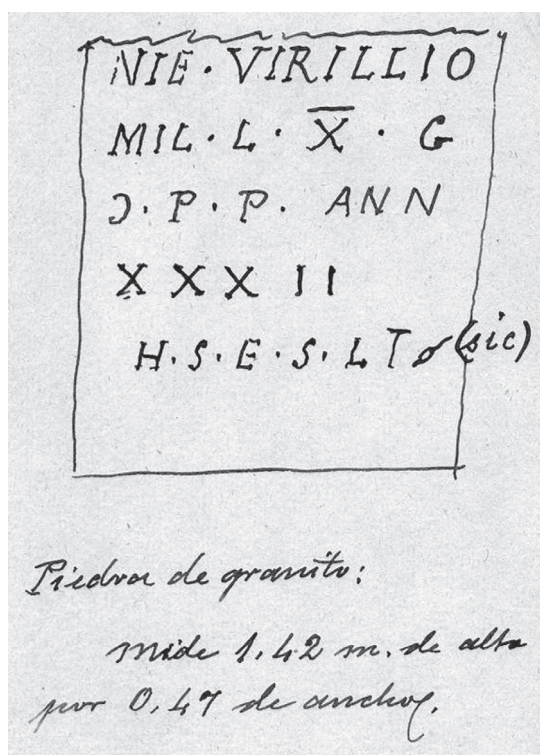 NIE · VIRILLIO
MIL · L · X̅ · G
Ɔ · P · P · ANN
XXXII
H · S · E · S · L T (sic)
Piedra de granito:
mide 1,42 m. de alto
por 0,47 de ancho.